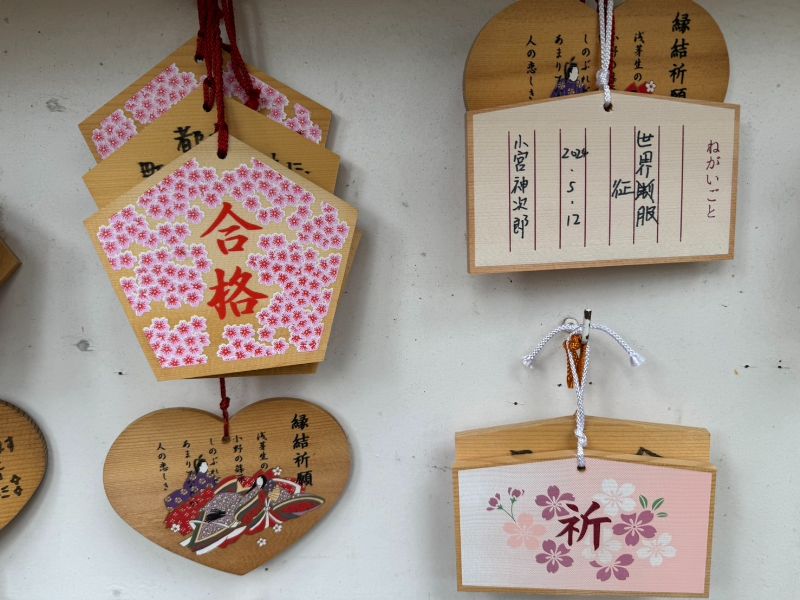 合格
縁結祈願
浅芽生の
小野の篠
しのぶれ
あまり
人の恋しき
縁結祈願
浅芽生の
しのぶれ
あまり
人の恋しき
ねがいごと
世界征服
2024.5.12
小宮神次郎
祈